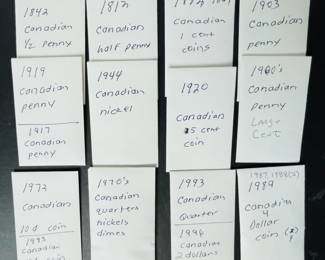 1842
Canadian
1/2 penny
Canadian
half penny
Canadian
1 cent
coins
1903
Canadian
penny
1919
Canadian
penny
1917
Canadian
penny
1944
Canadian
nickel
1920
Canadian
5 cent
coin
1900's
Canadian
penny
Large
Cent
1973
Canadian
10¢ coin
1993
Canadian
1970's
Canadian
quarters
nickels
dimes
1993
Canadian
Quarter
1996
Canadian
2 dollars
1987, 1988(2)
1989
Canadian
Dollar
coin